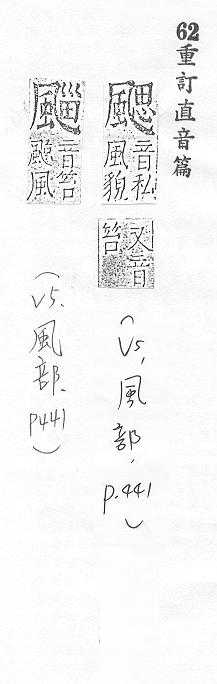 62重訂直音篇
颸
音私
風貌
又音
笞
(V5,風部,p.441)
音笞
風
(V5.風部.p441)